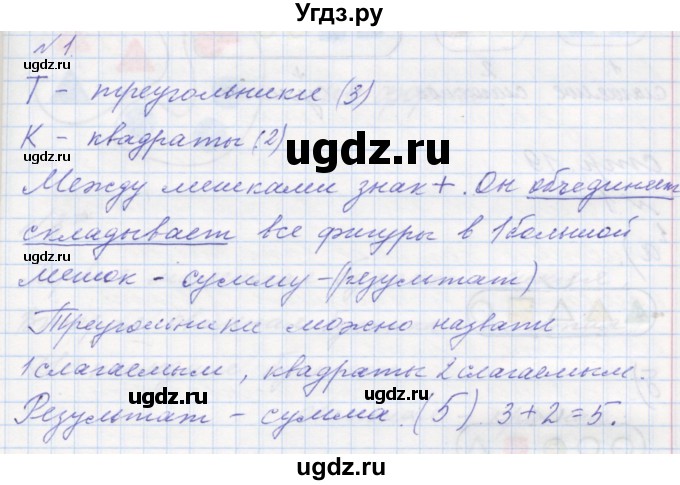 Угдз.ру
№1.
Т – треугольники (3)
ugdz.ru
К – квадраты (2)
ugdz.ru
Между мешками знак +. Он объединяет
складывает все фигуры в 1 большой
ugdz.ru
мешок – сумму – (результат)
ugdz.ru
Треугольники можно назвать
ugdz.ru
1 слагаемым, квадраты 2 слагаемым.
ugdz.ru
Результат – сумма. (5) 3+2=5.
ugdz.ru